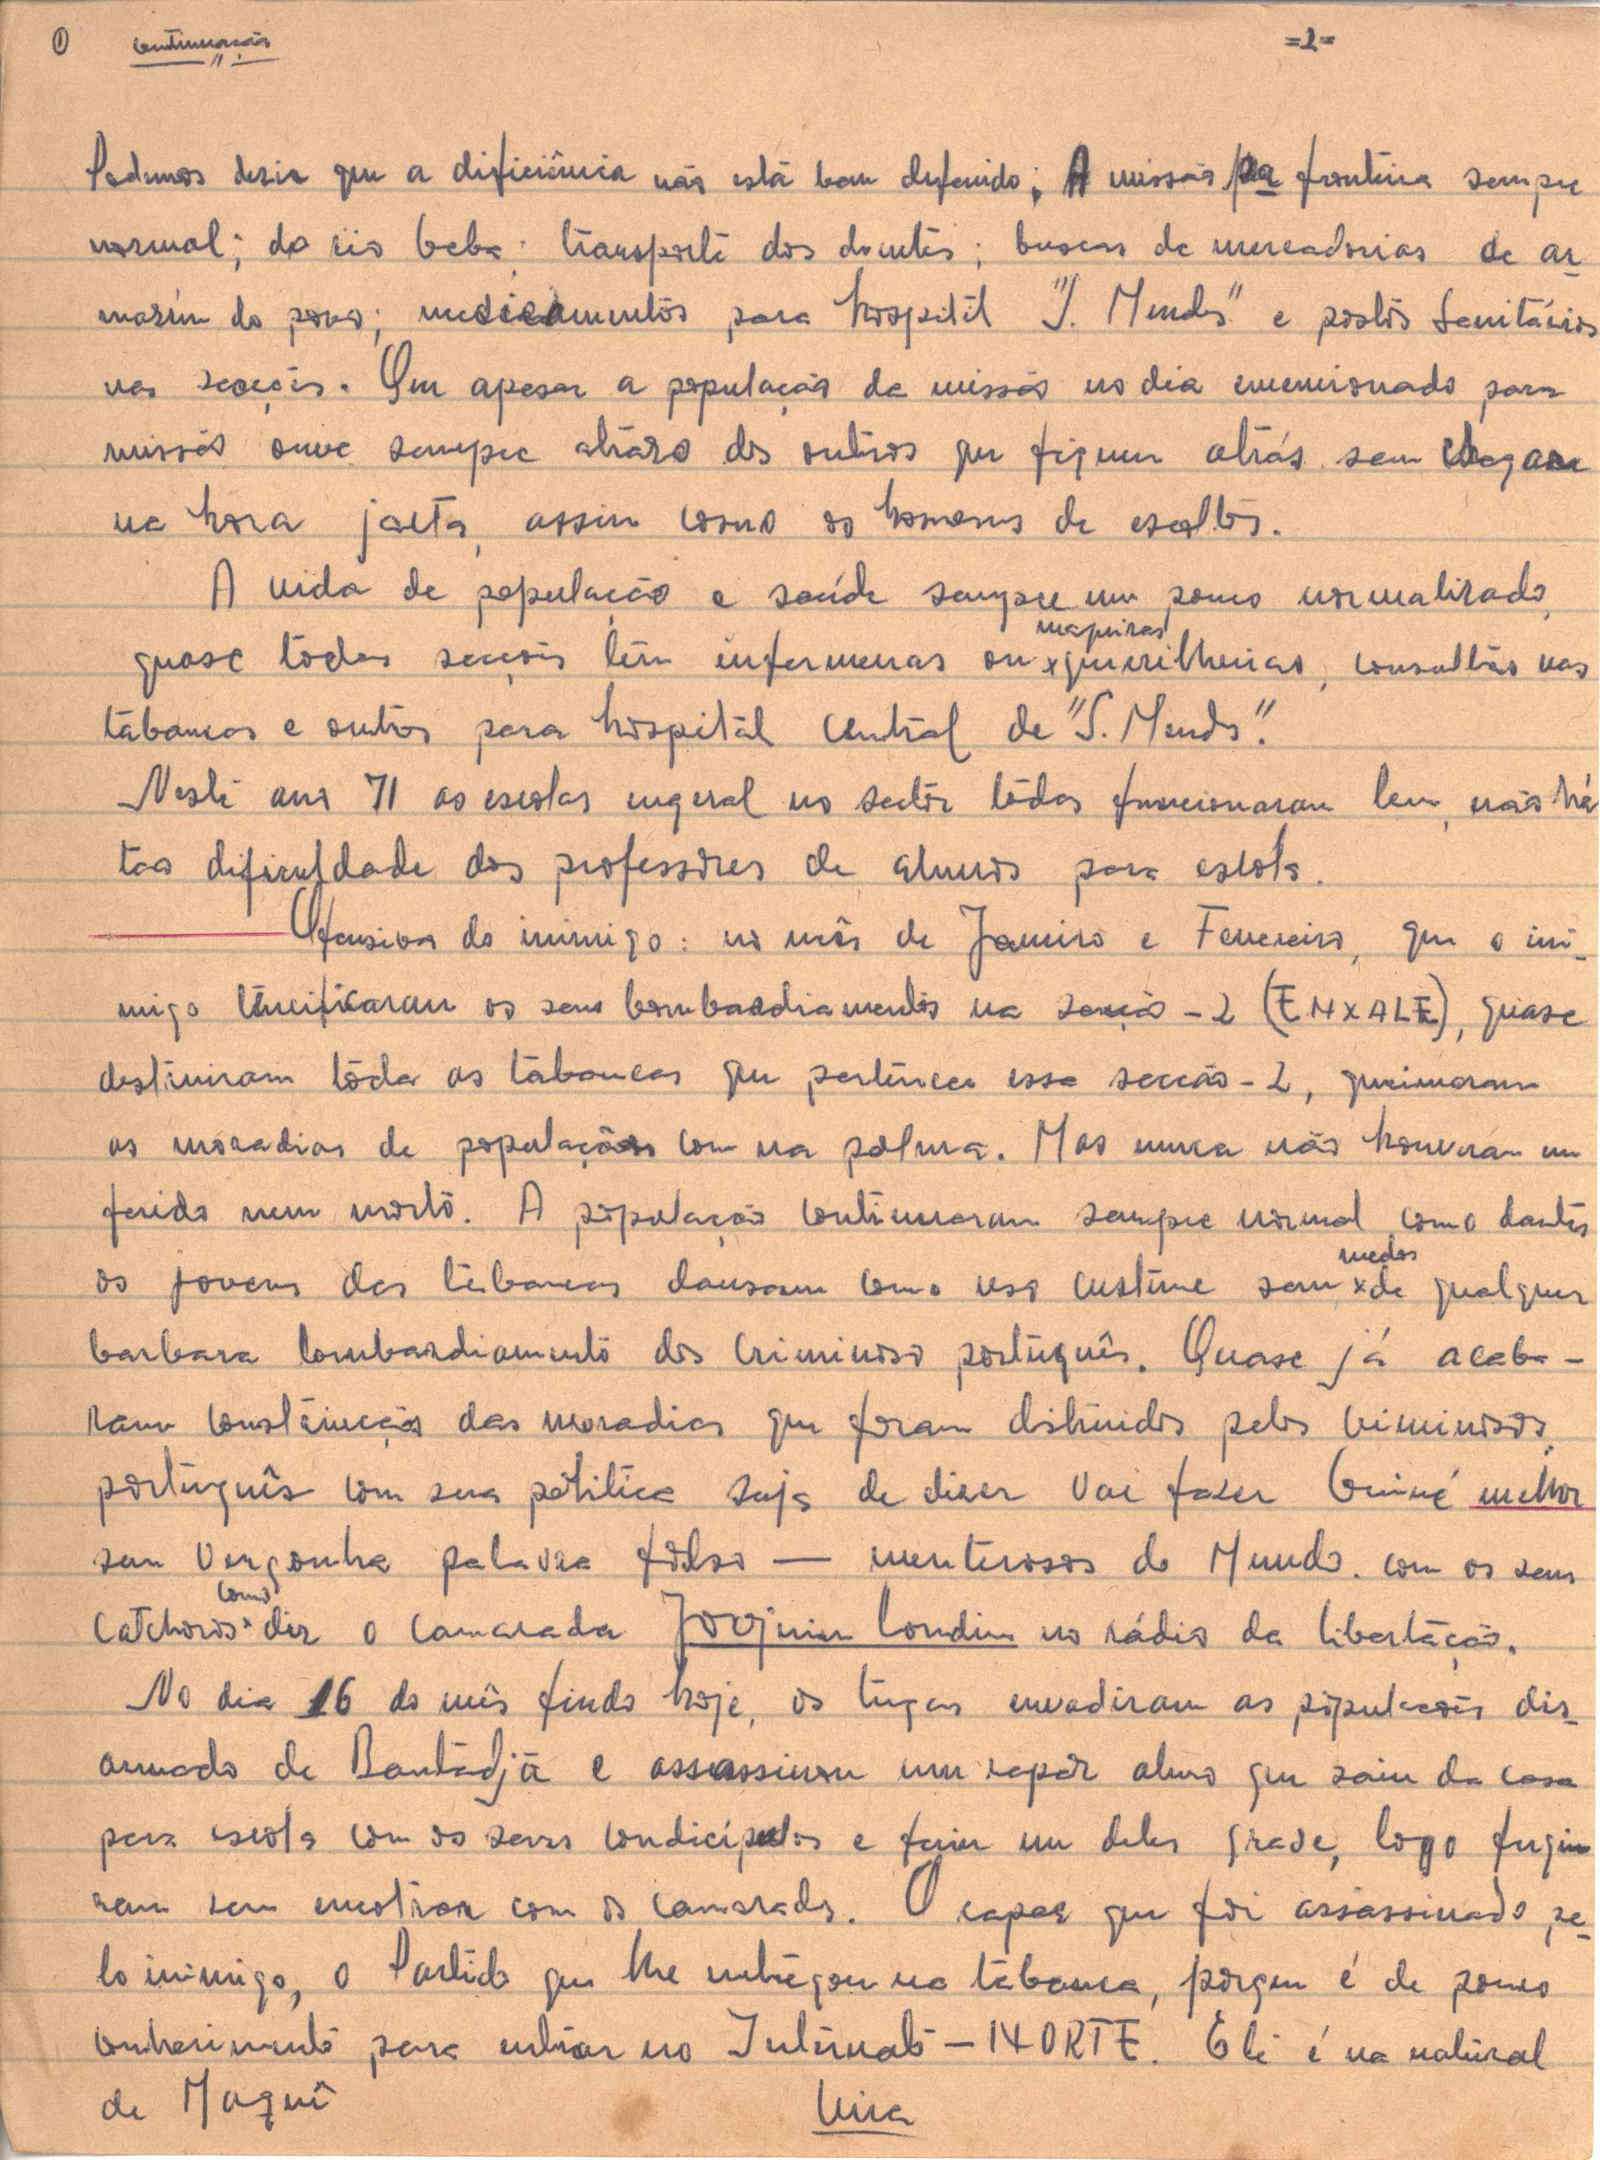 ① continuação =2=
Podemos desir que a dificiência não está bem defenido; A missão pa frontéira sempre
normal; do rio beba; transporte dos doentes; buscas de mercadorias de ar-
mazín do povo; medicamentos para hospitál "S. Mendes" e postos Sanitários
nas secções. Que apesar a população da missão no dia emencionado para
missão ouve sempre atrazo dos outros que fiquem atrás sem chegar
na hora jasta, assim como os homens de escoltas.
A vida de população e saúde sempre um pouco normalizado,
quase tôdas secçois têm infermeiras ou x maqueiras guerilheiras, consultão nas
tabancas e outros para hospitál central de "S. Mendes".
Neste ano 71 as escolas engeral no sectôr tôdas funcionaram bem, não há
tão dificuldade dos professôres de alunos para escola.
Ofensiva do inimigo: no mês de Janeiro e Fevereiro, que o ini-
migo tincificaram os seus bombardiamentos na secção - 2 (ENXALE), quase
destruiram tôda as tabancas que pertences essa secção - 2, queimaram
as moradias de populações com na palma. Mas nunca não houveram um
ferido nem morto. A população continuaram sempre normal como dantes
os jovens das tabancas dansam como uso custume sem x medos de qualquer
barbara bombardiamento dos criminoso português. Quase já acaba-
ram construcção das moradias que foram distruidos pelos criminosos
português com sua politica suja de dizer vai fazer Guiné melhor
sem vergonha palavra falso — menterosos do Mundo. com os seus
catchoros x como diz o camarada Joojuim Londim no rádio da libertação.
No dia 16 do mês findo hoje, os tugas envadiram as populações dis-
armado de Bantadjã e assassinou um rapaz aluno que saiu da casa
para escola com os seus condicípulos e feriu um deles grave, logo fugiu
ram sem encotrar com os camaradas. O rapaz que foi assassinado pe-
lo inimigo, o Partido que lhe entregou na tabanca, porque é de pouco
conhecimento para entrar no Internato - NORTE. Ele é na natural
de Maqué Vira